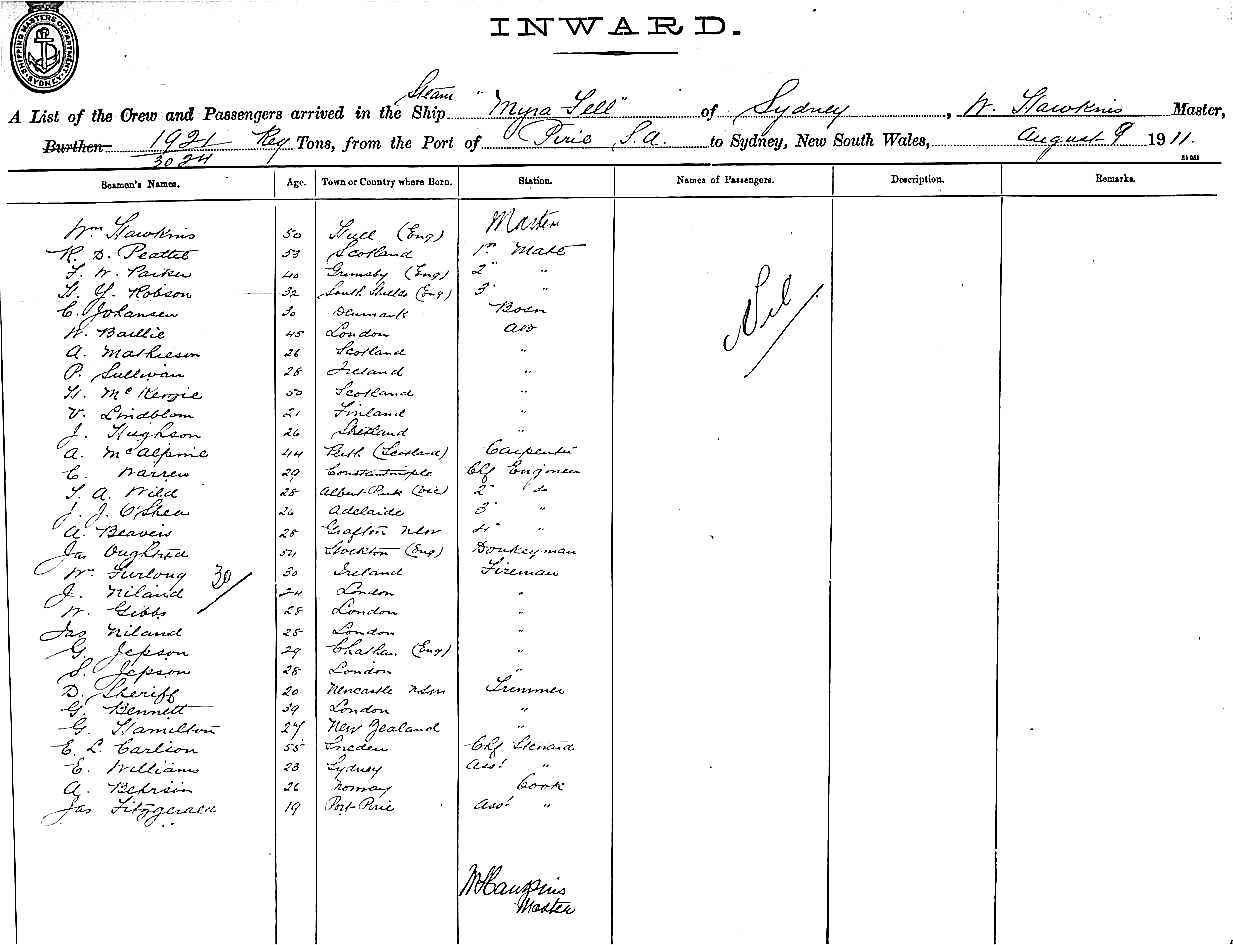 SHIPPING MASTERS DEPARTMENT SYDNEY
INWARD.
A List of the Crew and Passengers arrived in the Steam Ship "Myra Fell" of Sydney, W. Hawkins Master,
Burthen 1921 Reg Tons, from the Port of Pirie S.A. to Sydney, New South Wales, August 9 1911.
3024
Seamen's Names. Age. Town or Country where Born. Station. Names of Passengers. Description. Remarks.
Wm Hawkins 50 Hull (Eng) Master
R. D. 53 Scotland 1st Mate
F. W. Parker 40 Grimsby (Eng) 2" "
H. Y. Robson 32 South Shields (Eng) 3" "
C. Johansen 30 Denmark Bosn
W. Baillie 45 London AB
A. Mathieson 26 Scotland "
P. Sullivan 28 Ireland "
H. McKenzie 50 Scotland "
V. Lindblom 21 Finland "
J. Hughson 26 Shetland "
A. McAlpine 44 Perth (Scotland) Carpenter
C. Warren 29 Constantinople Chf Engineer
T. A. Wild 28 Albert Park (Vic) 2" do
J. J. O'Shea 26 Adelaide 3" "
A. Beavers 28 Grafton NSW 4" "
Jas Oughtred Stockton (Eng) Donkeyman
Wm Furlong 30 Ireland Fireman
J. Niland 24 London "
W. Gibbs 28 London "
Jas Niland 25 London "
G. Jepson 29 Chatham (Eng) "
S. Jepson 28 London "
D. Sheriff 20 Newcastle NSW Trimmer
G. Bennett 39 London "
G. Hamilton 27 New Zealand "
E. L. Carlson 55 Sweden Chf Steward
E. Williams 23 Sydney Asst "
A. 26 Norway Cook
Jas Fitzgerald 19 Port Pirie Asst "
30
Nil
W Hawkins
Master